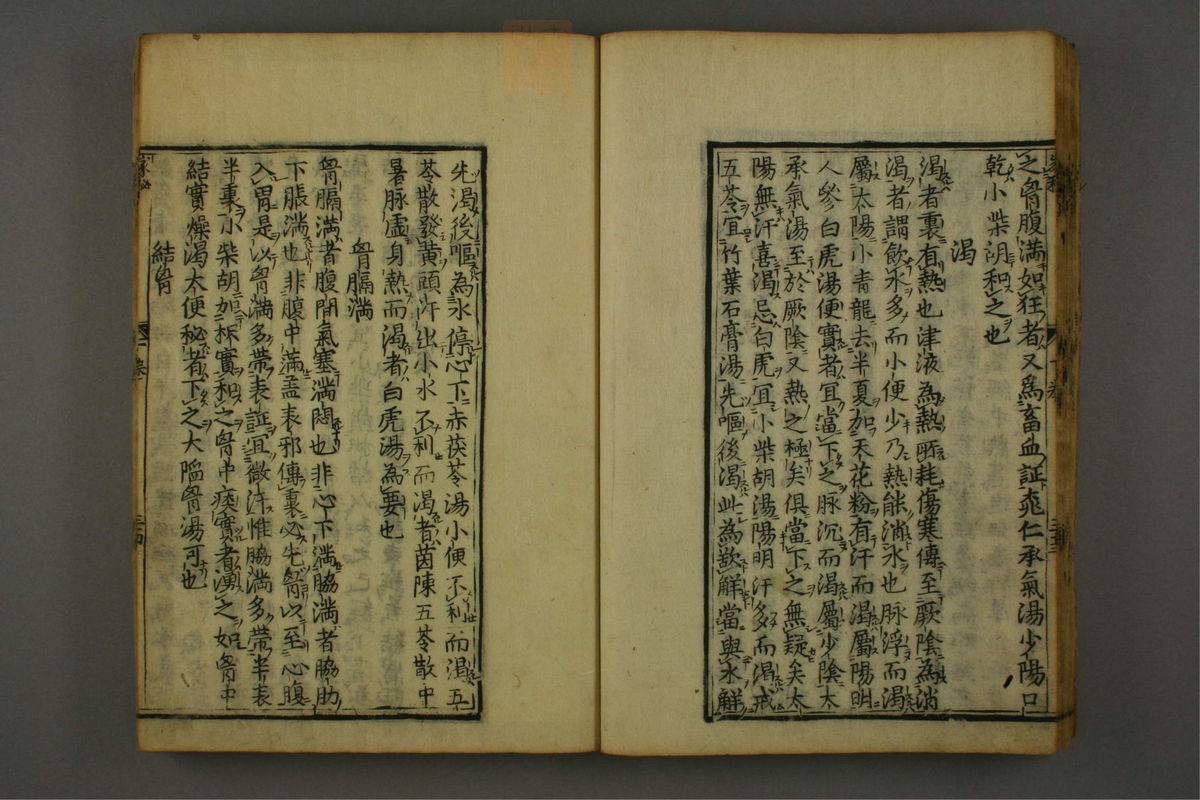 之胷腹満如狂者又為畜血証桃仁承氣湯少陽口
乾小柴胡和之也
渇
渇者裏有熱也津液為熱所耗傷寒傳至厥陰為消
渇者謂飲水多而小便少乃熱能消水也脉浮而渇
屬太陽小青龍去半夏加天花粉有汗而渇屬陽明
人參白虎湯便實者宜當下之脉沉而渇屬少陰太
承氣湯至於厥陰又熱之極矣俱當下之無疑矣太
陽無汗喜渇忌白虎宜小柴胡湯陽明汗多而渇戒
五苓宜竹葉石膏湯先嘔後渇此為欲觧當與水觧
先渇後嘔為水停心下赤茯苓湯小便不利而渇五
苓散發黄頭汗出小水不利而渇者茵陳五苓散中
暑脉虚身熱而渇者白虎湯為要也
胷膈満
胷膈満者腹間氣塞満悶也非心下満脇満者脇肋
下脹満也非腹中満盖表邪傳裏必先胷以至心腹
入胃是以胷満多帶表証宜微汗惟脇満多帶半表
半裏小柴胡加枳實和之胷中痰實者湧之如胷中
結實燥渇大便秘者下之大陥胷湯可也
結胷